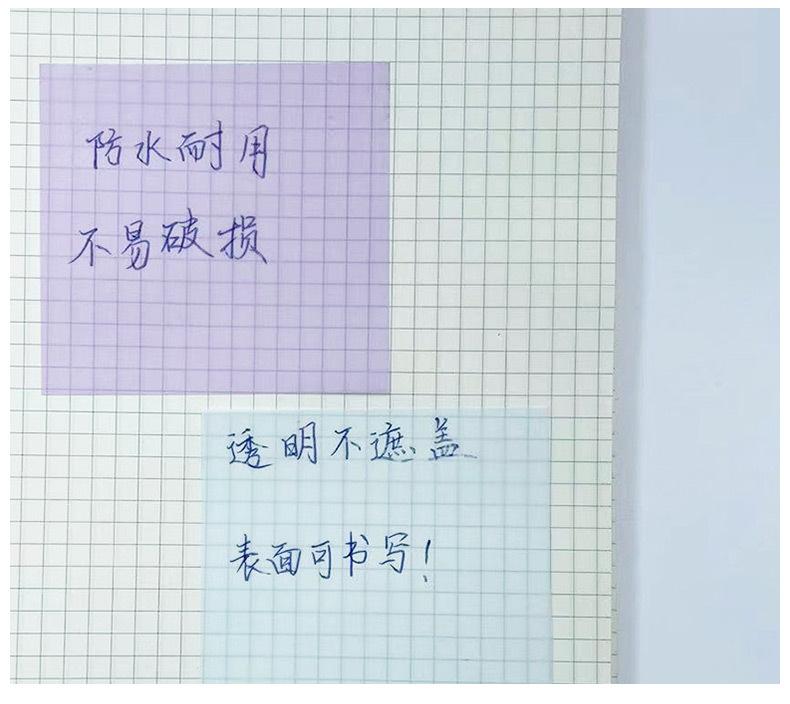 防水耐用
不易破损
透明不遮盖
表面可书写!